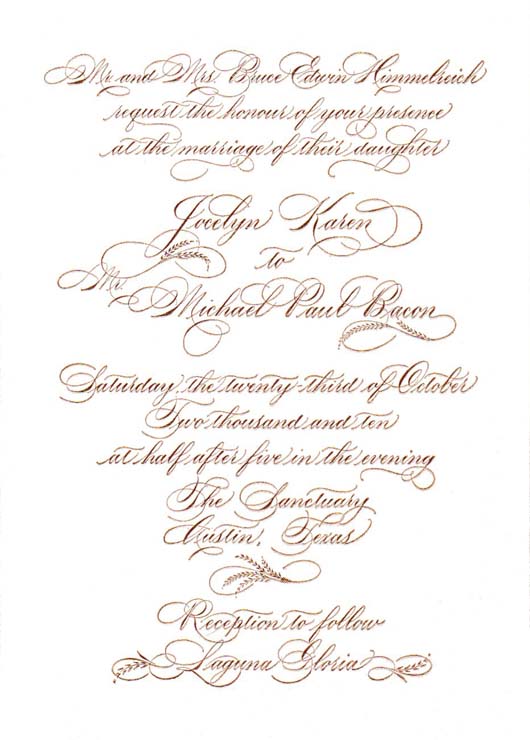 Mr. and Mrs. Bruce Edwin Himmelreich
request the honour of your presence
at the marriage of their daughter
Jocelyn Karen
to
Mr.
Michael Paul Bacon
Saturday, the twenty-third of October
Two thousand and ten
at half after five in the evening
The Sanctuary
Austin, Texas
Reception to follow
Laguna Gloria